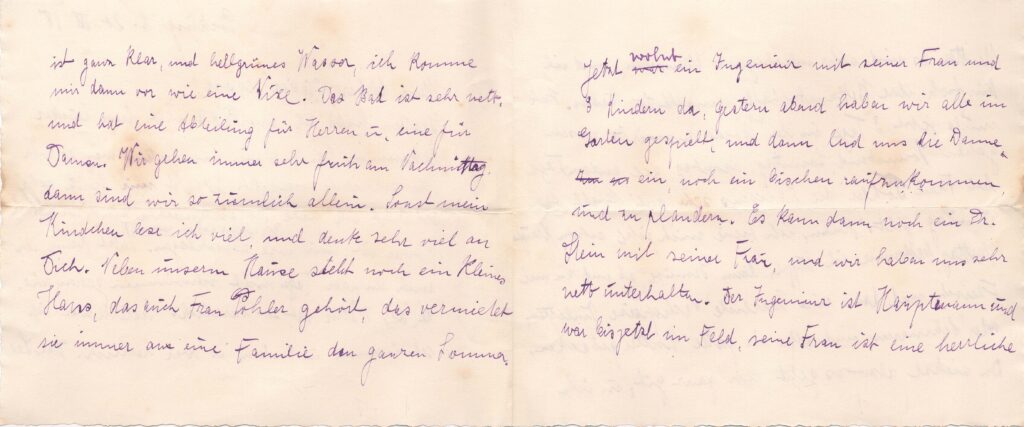 ist ganz klar, und hellgrünes Wasser, ich komme
mir dann vor wie eine Nixe. Das Bad ist sehr nett,
und hat eine Abteilung für Herren u. eine für
Damen. Wir gehen immer sehr früh am Nachmittag,
dann sind wir so zimlich allein. Sonst mein
Kindchen lese ich viel, und denke sehr viel an
Dich. Neben unserm Hause steht noch ein kleines
Haus, das auch Frau Pöhler gehört, das vermietet
sie immer an eine Familie den ganzen Sommer.
Jetzt wohnt ein Ingenieur mit seiner Frau und
3 Kindern da, gestern abend haben wir alle im
Garten gespielt, und dann lud uns die Dame
ein, noch ein bischen raufzukommen,
und zu plaudern. Es kam dann noch ein Dr.
Stein mit seiner Frau, und wir haben uns sehr
nett unterhalten. Der Ingenieur ist Hauptmann und
war bis jetzt im Feld, seine Frau ist eine herrliche